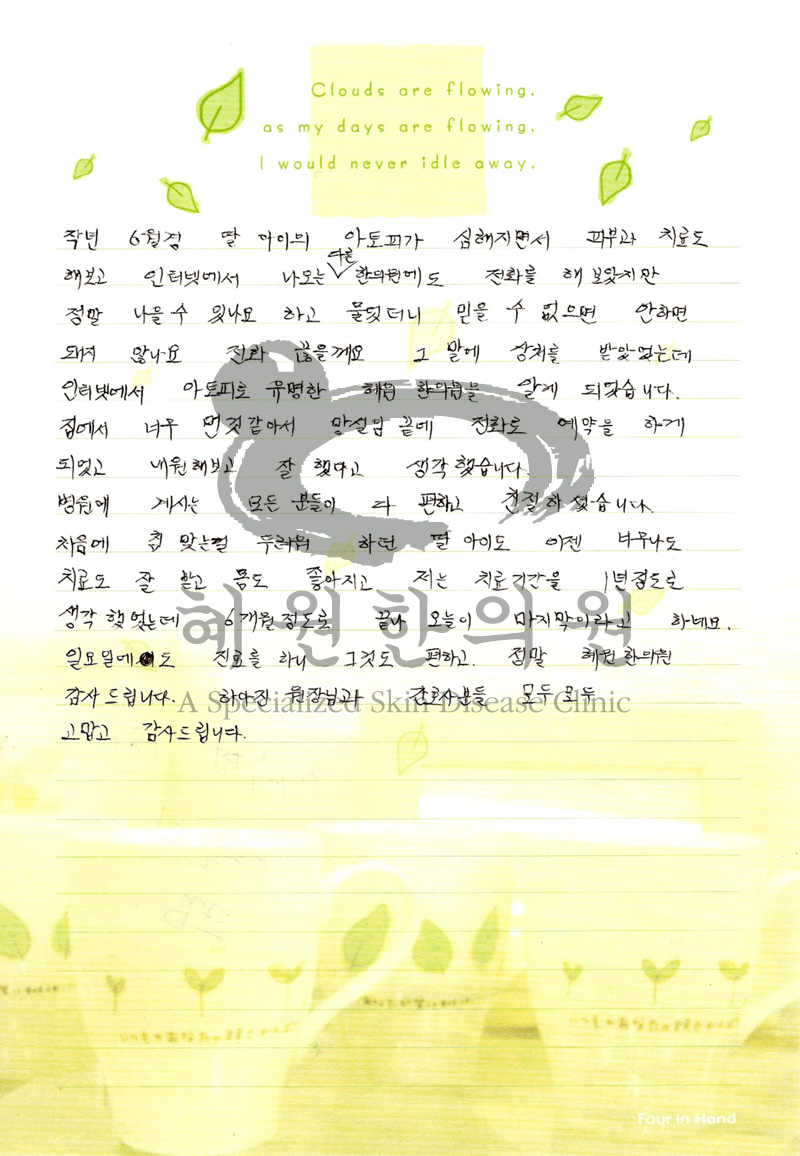 Clouds are flowing,
as my days are flowing.
I would never idle away.
작년 6월경 딸 아이의 아토피가 심해지면서 피부과 치료도
해보고 인터넷에서 나오는 다른 한의원에도 전화를 해 보았지만
정말 나을 수 있나요 하고 물었더니 믿을 수 없으면 안하면
돼지 않나요 전화 끊을께요 그 말에 상처를 받았었는데
인터넷에서 아토피로 유명한 혜원 한의원을 알게 되었습니다.
집에서 너무 먼것같아서 망설임 끝에 전화로 예약을 하게
되었고 내원해보고 잘 했다고 생각했습니다.
병원에 계시는 모든 분들이 다 편하고 친절하셨습니다.
처음에 침 맞는걸 두려워 하던 딸 아이도 이젠 너무나도
치료도 잘 받고 몸도 좋아지고 저는 치료기간을 1년정도로
생각했었는데 6개월정도로 끝나 오늘이 마지막이라고 하네요.
일요일에도 진료를 하니 그것도 편하고. 정말 혜원한의원
감사드립니다. 하아진 원장님과 간호사분들 모두모두
고맙고 감사드립니다.
혜원한의원
A Specialized Skin Disease Clinic
Four in Hand